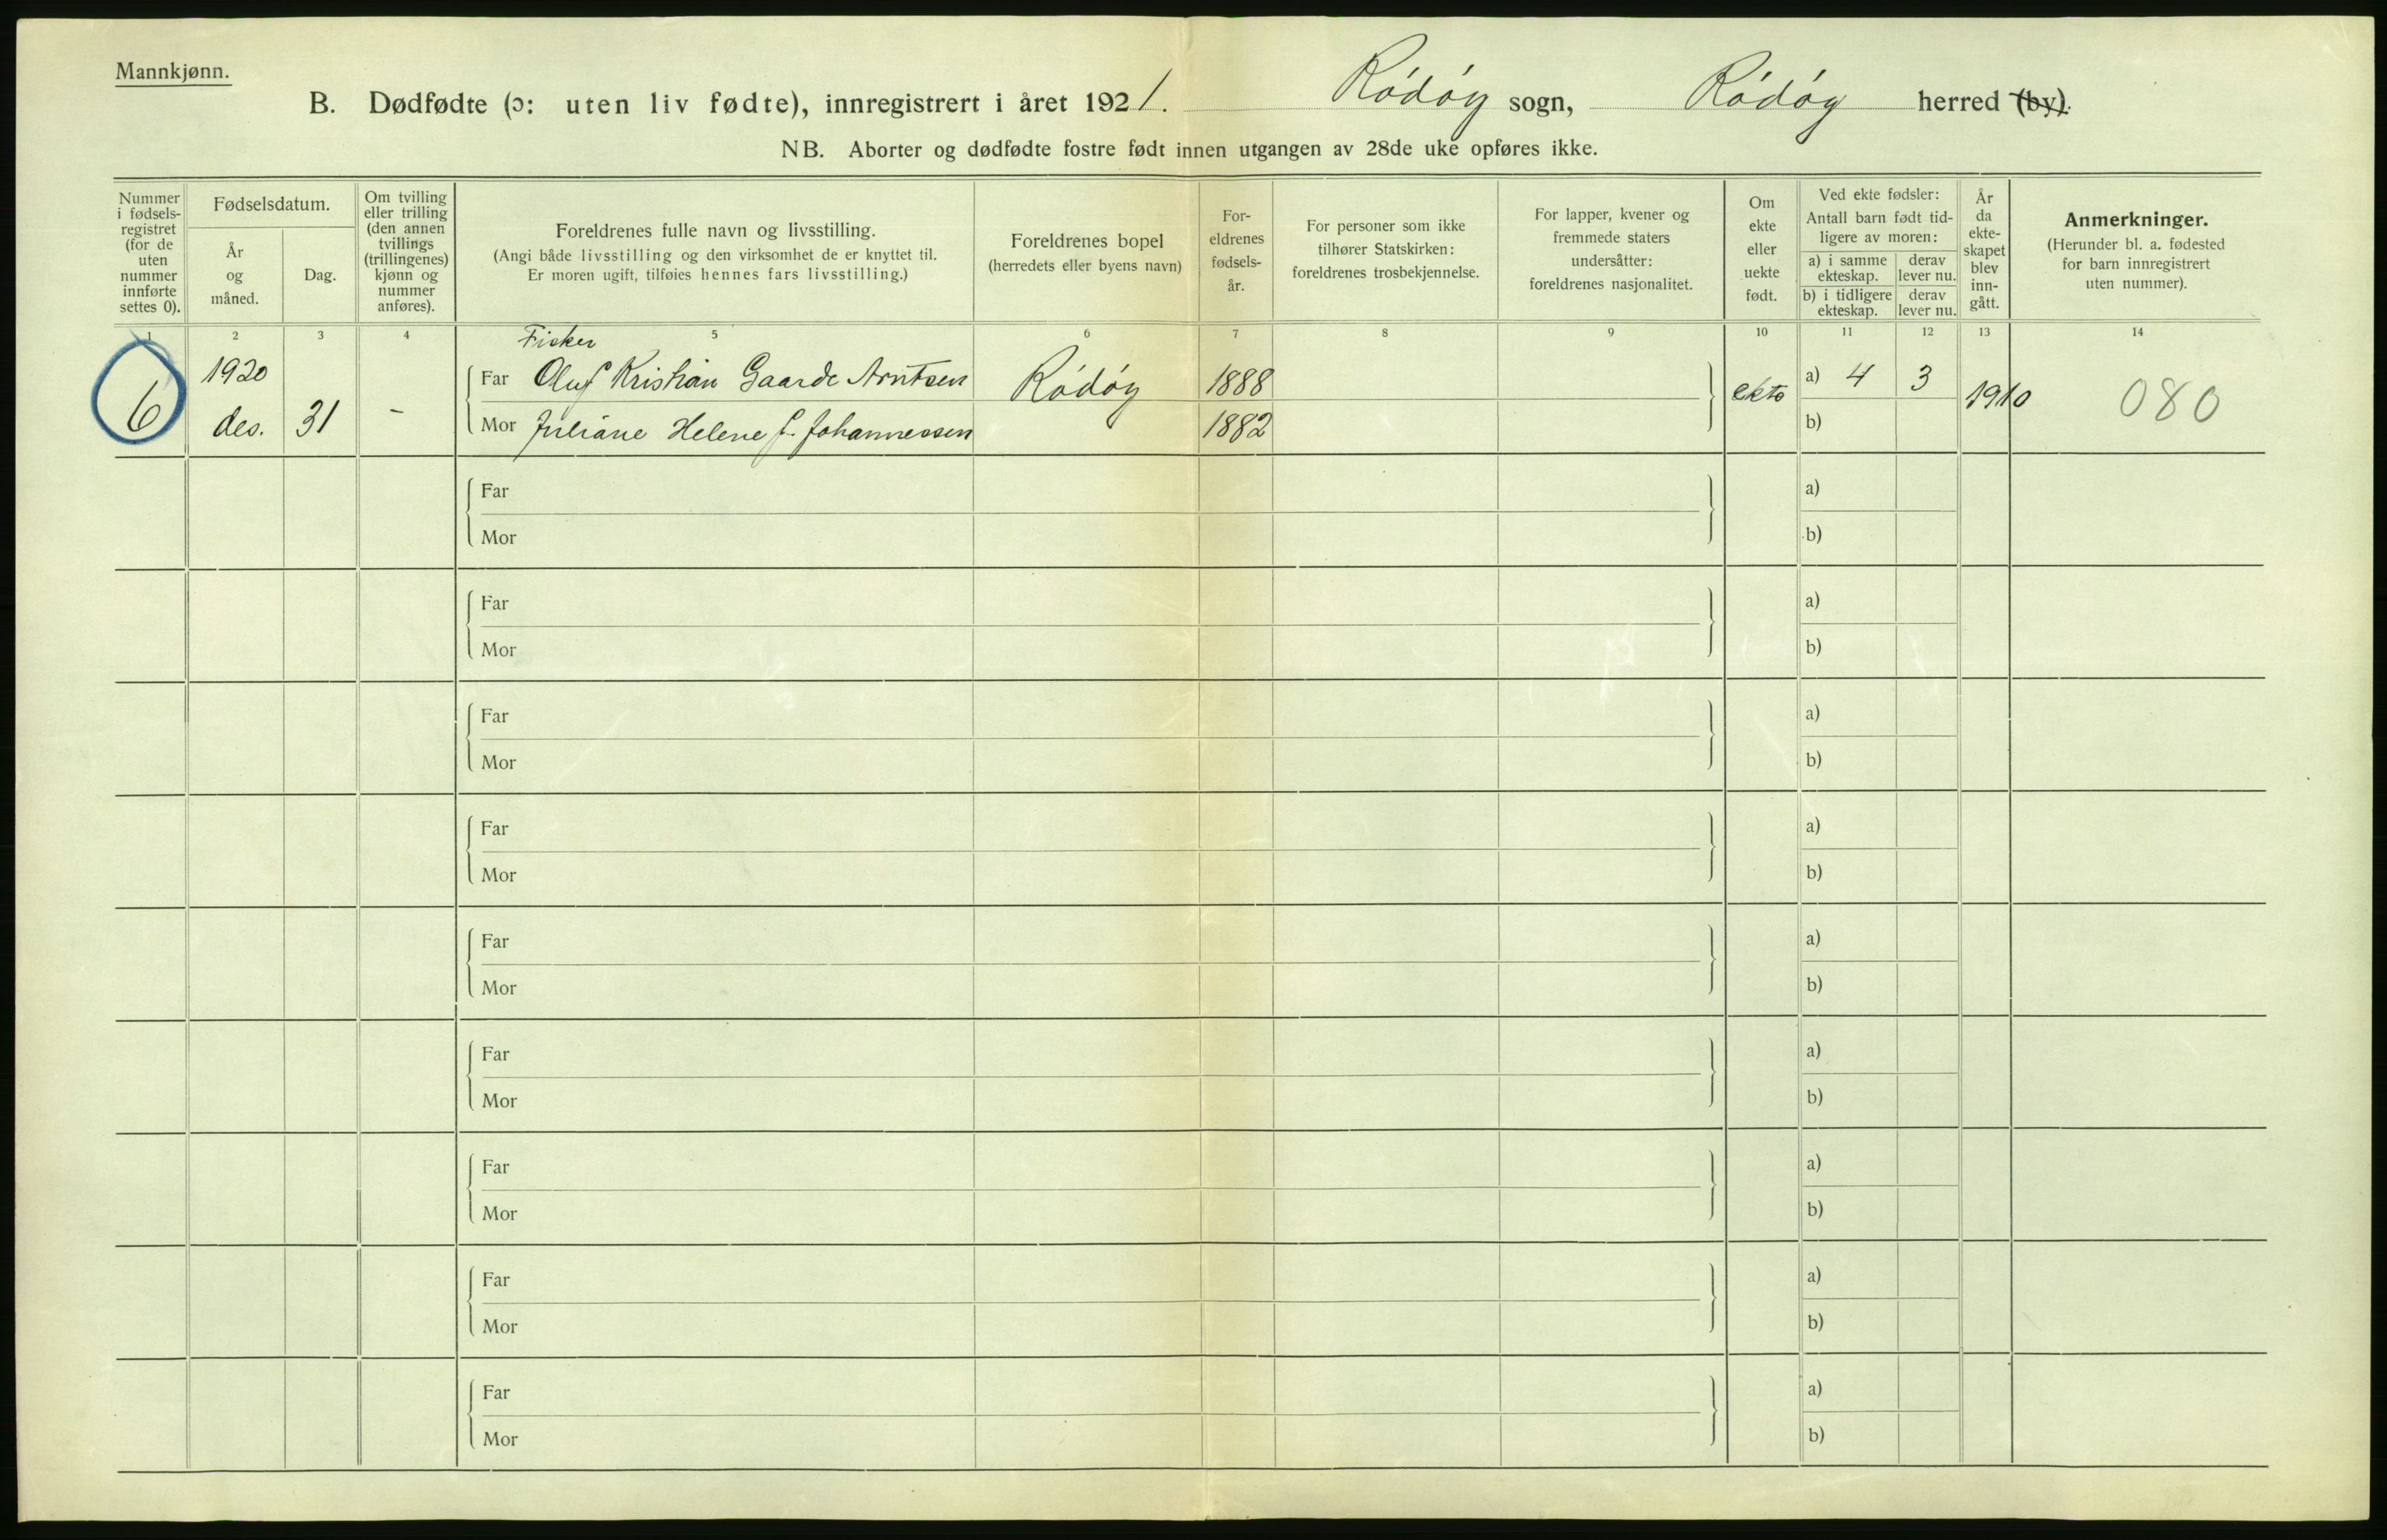 Mannkjønn.
B. Dødfødte (ɔ: uten liv fødte), innregistrert i året 1921. Rødøy sogn, Rødøy herred (by).
NB. Aborter og dødfødte fostre født innen utgangen av 28de uke opføres ikke.
Nummer i fødsels-registret (for de uten nummer innførte settes 0).
Fødselsdatum.
År og måned.
Dag.
Om tvilling eller trilling (den annen tvillings (trillingenes) kjønn og nummer anføres).
Foreldrenes fulle navn og livsstilling.
(Angi både livsstilling og den virksomhet de er knyttet til.
Er moren ugift, tilføies hennes fars livsstilling.)
Foreldrenes bopel
(herredets eller byens navn)
For-eldrenes fødsels-år.
For personer som ikke tilhører Statskirken: foreldrenes trosbekjennelse.
For lapper, kvener og fremmede staters undersåtter: foreldrenes nasjonalitet.
Om ekte eller uekte født.
Ved ekte fødsler:
Antall barn født tid-ligere av moren:
a) i samme ekteskap.
derav lever nu.
b) i tidligere ekteskap.
derav lever nu.
År da ekte-skapet blev inn-gått.
Anmerkninger.
(Herunder bl. a. fødested for barn innregistrert uten nummer).
1 2 3 4 5 6 7 8 9 10 11 12 13 14
Fisker
1920
Far Oluf Kristian Gaarde Arntsen Rødøy 1888 ekte a) 4 3 1910 080
6 des. 31 -
Mor Juliane Helene f. Johannessen 1882 b)
Far a)
Mor b)
Far a)
Mor b)
Far a)
Mor b)
Far a)
Mor b)
Far a)
Mor b)
Far a)
Mor b)
Far a)
Mor b)
Far a)
Mor b)
Far a)
Mor b)